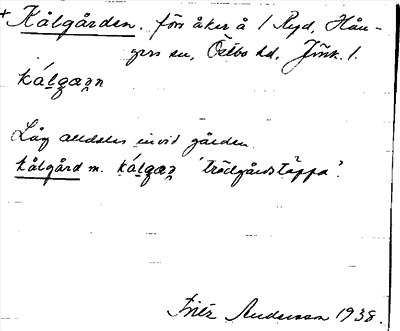 + Kålgården. förr åker å 1 Ryd, Hån-
gers sn, Östbo hd, Jönk. l.
kálgaṇn
Låg alldeles invid gården.
kålgård m. kálgaṇ 'trädgårdstäppa'.
Andersson 1938.